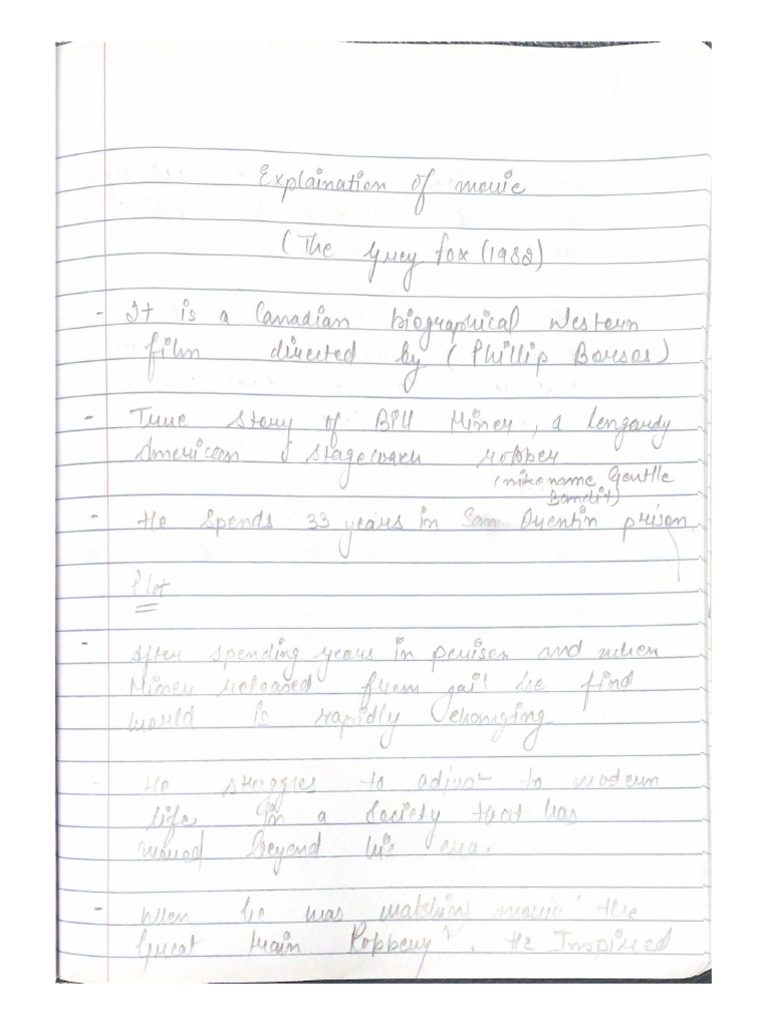 Explaination of movie
(The Grey fox (1982)
- It is a Canadian biographical Western
film directed by (Phillip Borsos)
- True story of Bill Miner, a lengardy
American stagecoach robber
(nikename Gentle
Bandit)
- He spends 33 years in San Quentin prison
Plot
- After spending years in prison and when
Miner released from jail he find
world is rapidly changing
- He struggles to adjust to modern
life in a society that has
moved beyond his era.
- When he was watching movie 'the
Great train Robbery'. He Inspired